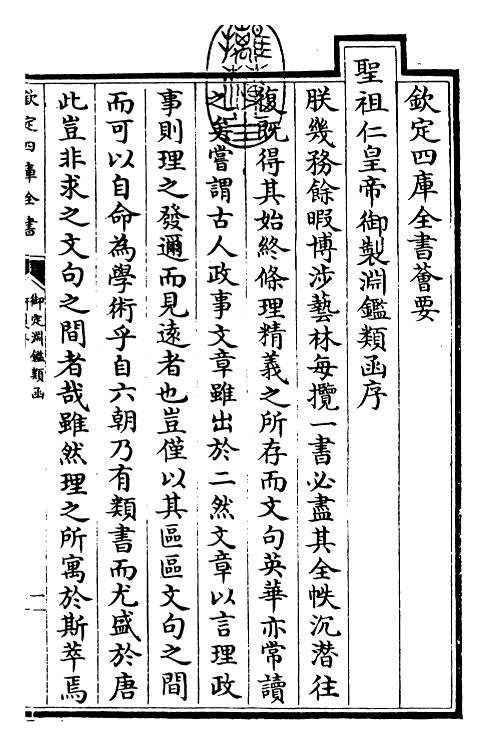 欽定四庫全書薈要
聖祖仁皇帝御製淵鑑類函序
朕幾務餘暇博涉藝林每攬一書必盡其全帙沉潛往
復既得其始終條理精義之所存而文句英華亦常讀
之矣嘗謂古人政事文章雖出於二然文章以言理政
事則理之發邇而見遠者也豈僅以其區區文句之間
而可以自命為學術乎自六朝乃有類書而尤盛於唐
此豈非求之文句之間者哉雖然理之所寓於斯萃焉
欽定四庫全書
御定淵鑑類函
一